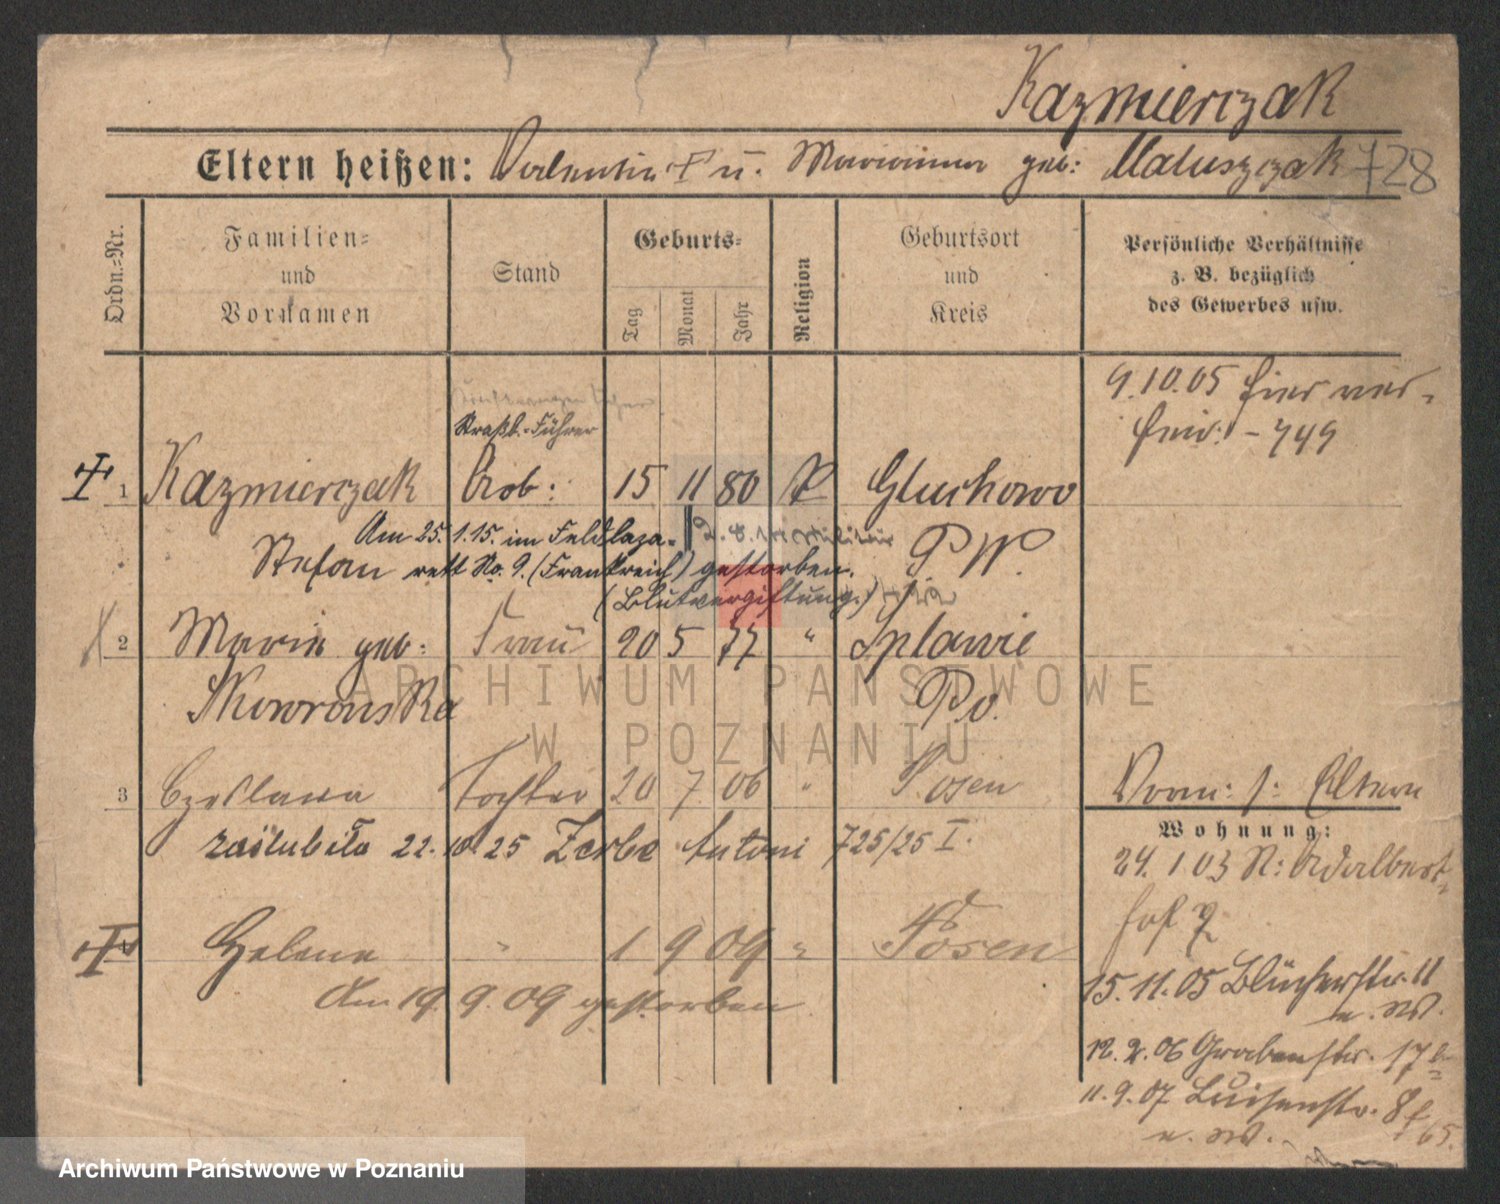 Kazmierczak
Eltern heißen: Valentin † u. Marianna geb: Matuszczak 728
Ordn.-Nr.
Familien-
und
Vornamen
Stand
Geburts-
Tag
Monat
Jahr
Religion
Geburtsort
und
Kreis
Persönliche Verhältnisse
z. B. bezüglich
des Gewerbes usw.
9.10.05 hier ver-
heir: - 749
Straßb.-Führer
1 Kazmierczak Arb: 15 11 80 K Gluchowo
Am 25.1.15. im Feldlaza-
Stefan rett No. 9. (Frankreich) gestorben. P W.
(Blutvergiftung.)
2 Marie geb: Frau 20 5 77 " Splawie
Skowronska Po.
3 Czeslawa Tochter 20 7 06 " Posen
zaślubiła 22.10.25 Zerbe Antoni 725/25 I.
Vorm: s: Eltern
Wohnung:
24.1 03 St: Adalbert-
hof 7
4 Helene " 1 9 09 " Posen
Am 19.9.09 gestorben
15.11.05 Blücherstr. 11
u. W.
12.2.06 Grabenstr. 17
11.9.07 Luisenstr. 8
u. W.
ARCHIWUM PAŃSTWOWE
W POZNANIU
Archiwum Państwowe w Poznaniu